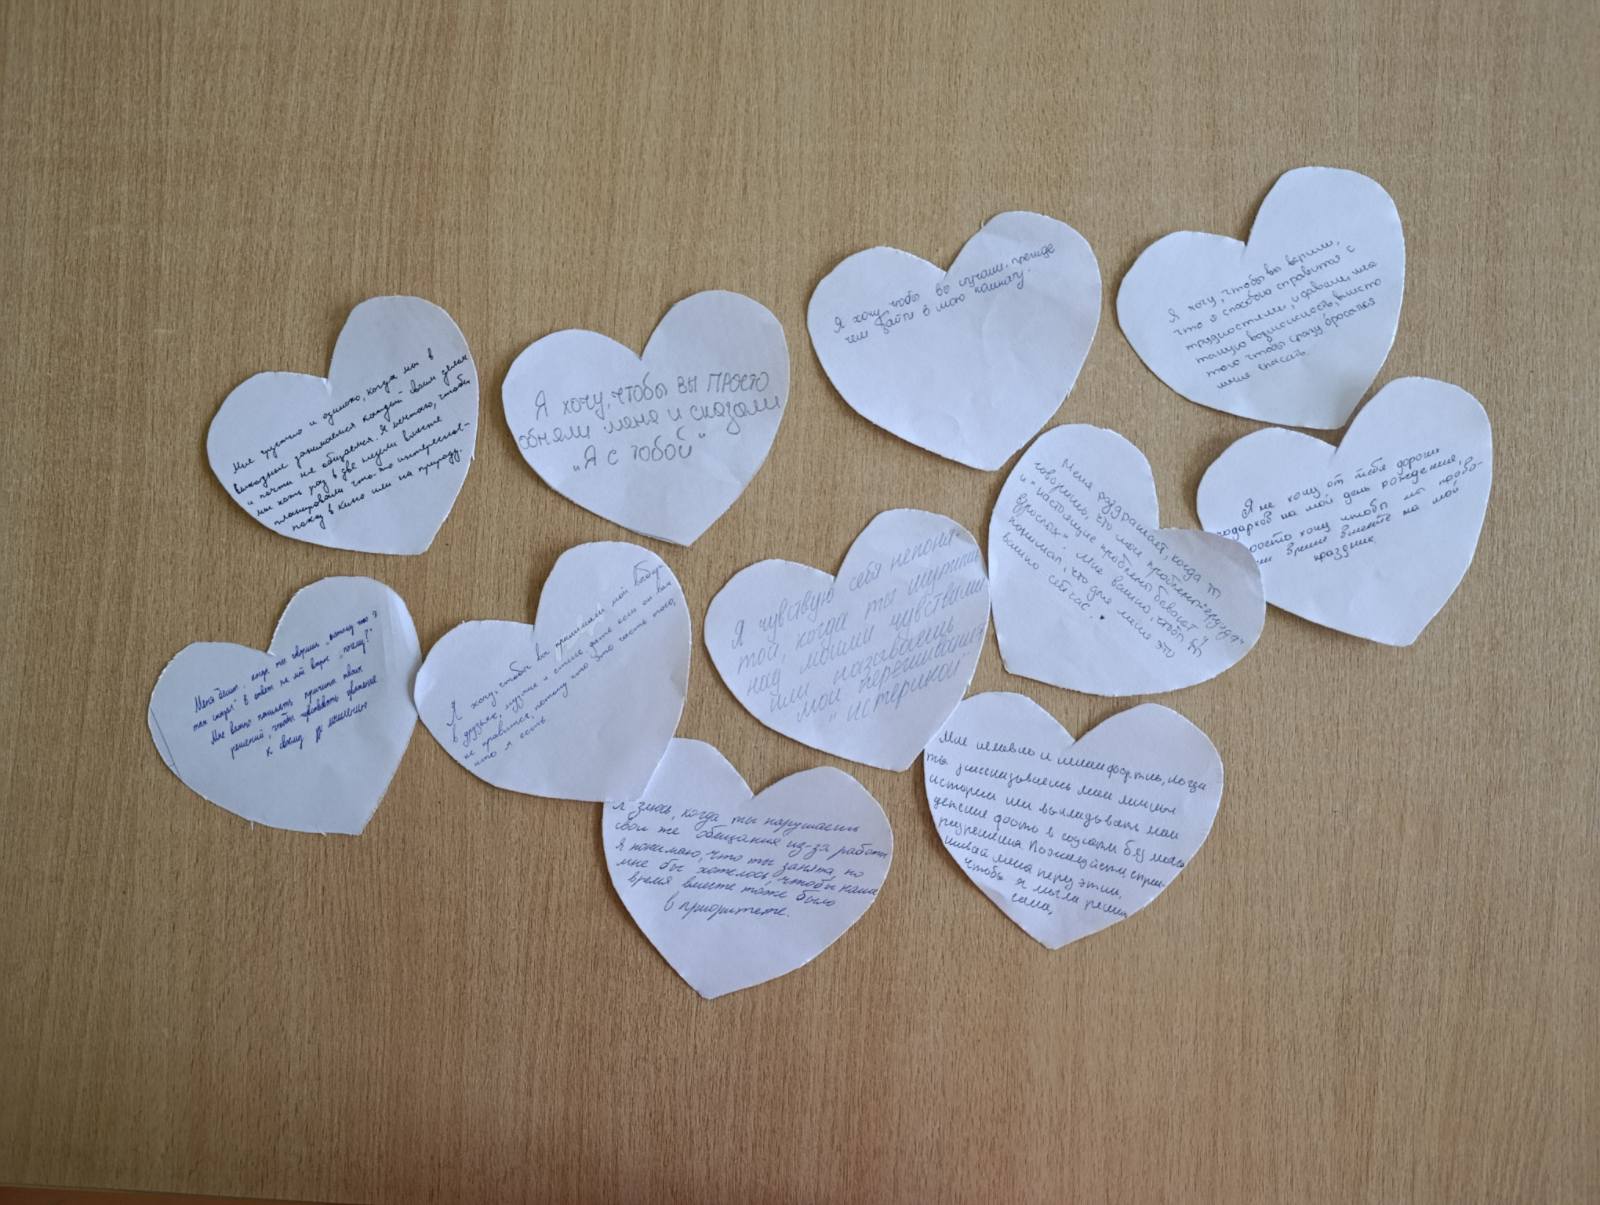 Мне грустно и одиноко, когда мы в
выходные занимаемся каждый своим делом
и почти не общаемся. Я мечтаю, чтобы
мы хоть раз в две недели вместе
планировали что-то интересное-
поход в кино или на природу.
Я хочу, чтобы вы просто
обняли меня и сказали
"Я с тобой"
Я хочу чтобы вы стучали, прежде
чем зайти в мою комнату.
Я хочу, чтобы вы верили,
что я способна справиться с
трудностями, и давали мне
такую возможность, вместо
того чтобы сразу бросаться
меня спасать.
Я не хочу от тебя дорогих
подарков на мой день рождения,
просто хочу чтобы ты
время вместе на мой
праздник.
Меня раздражает, когда т
говоришь, что мои проблемы "ерунда"
и "настоящие проблемы бывают у
взрослых". Мне важно, чтоб ты
понимал, что для меня это
важно сейчас.
Я чувствую себя непоня-
той, когда ты шутишь
над моими чувствами
или называешь
мои переживания
"истерикой"
Меня бесит, когда ты говоришь "потому что я
так сказал" в ответ на мой вопрос "почему?"
Мне важно понимать причины твоих
решений, чтобы чувствовать уважение
к своему мнению
Я хочу, чтобы вы принимали мой выбор
в друзьях, музыке и стиле, даже если он вам
не нравится, потому что это часть того,
кто я есть
Я злюсь, когда ты нарушаешь
свои же обещания из-за работы
Я понимаю, что ты занята, но
мне бы хотелось, чтобы наше
время вместе тоже было
в приоритете.
Мне неловко и некомфортно, когда
ты рассказываешь мои личные
истории или выкладываешь мои
детские фото в соцсети без моего
разрешения. Пожалуйста спраши-
вай меня перед этим,
чтобы я могла решать
сама,